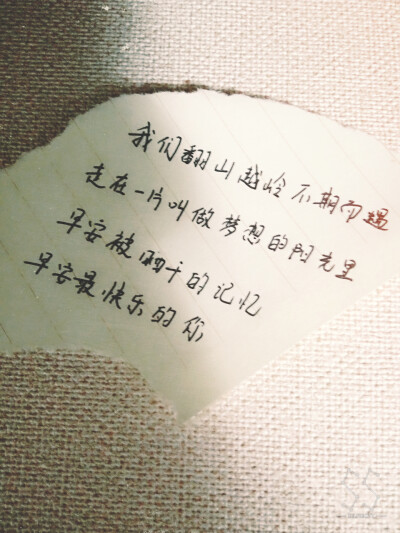 我们翻山越岭不期而遇
走在一片叫做梦想的阳光里
早安被晒干的记忆
早安最快乐的你